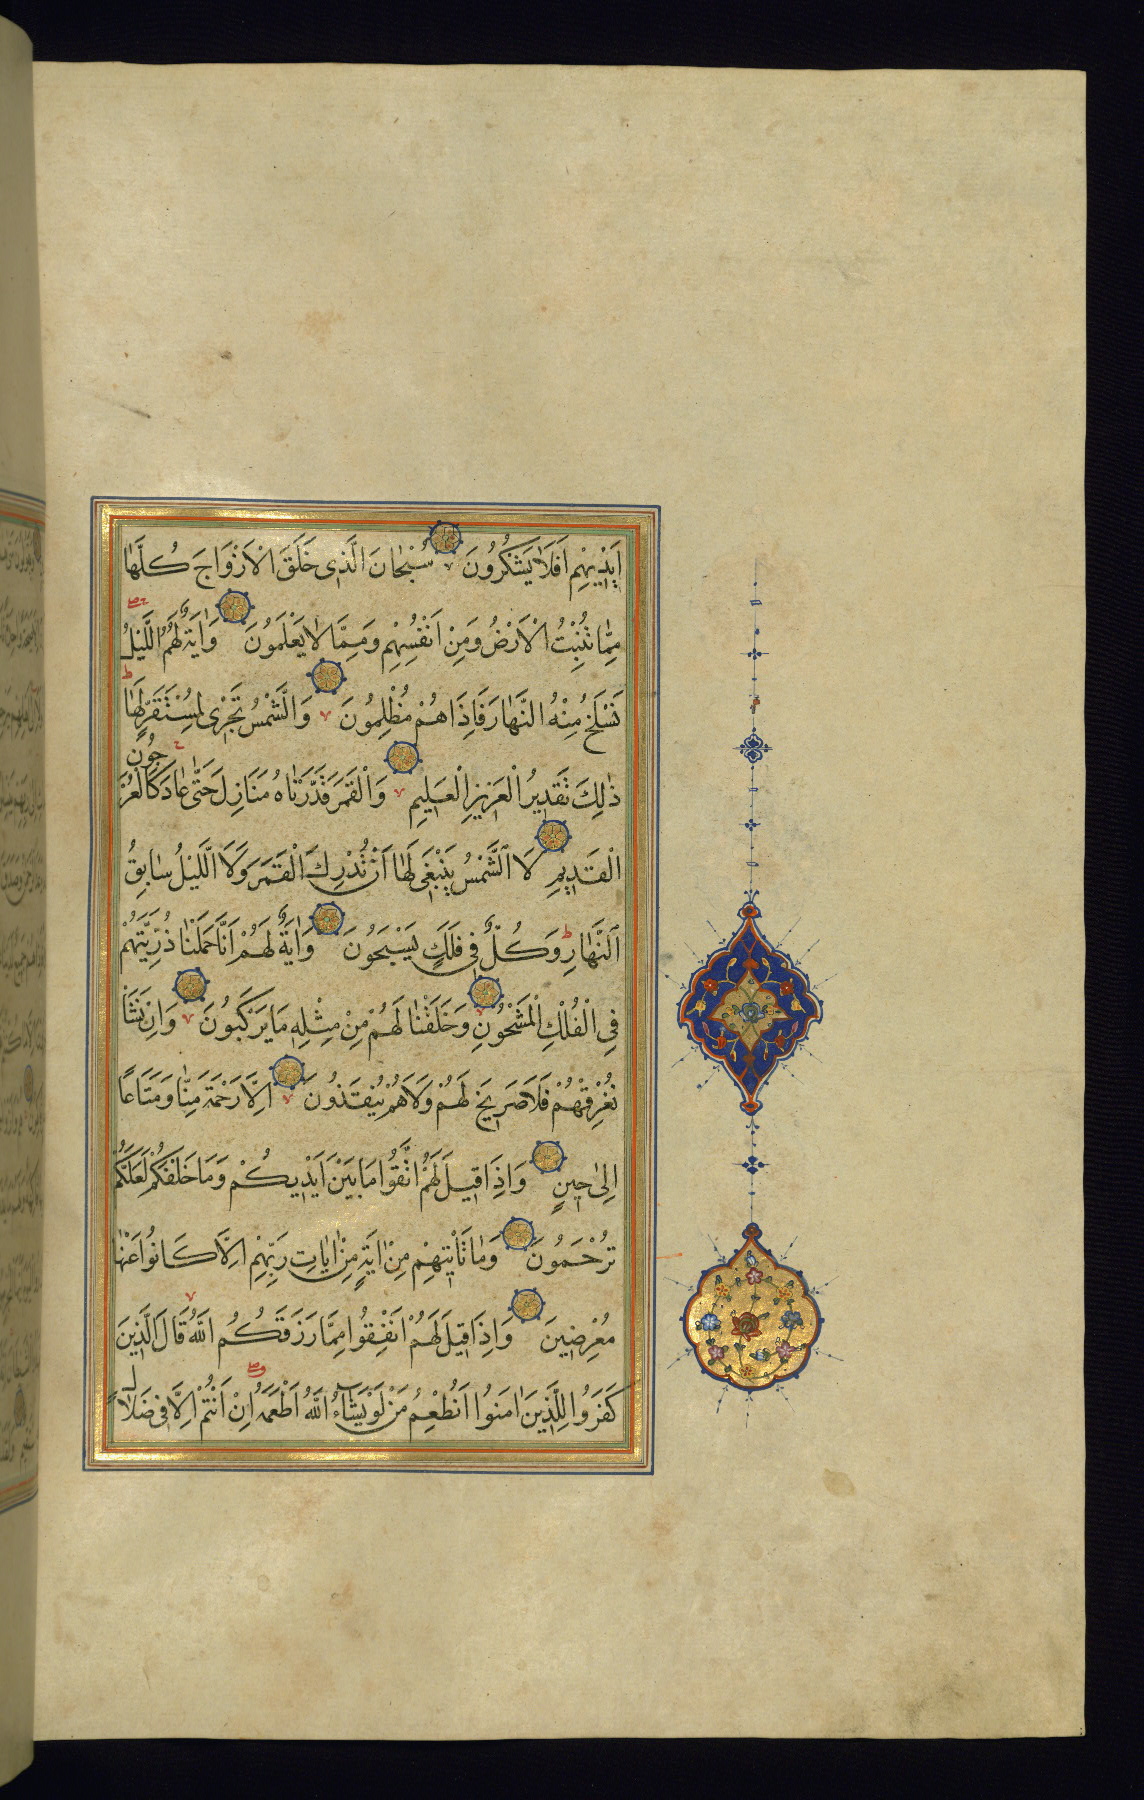 اَيْدِيهِمْ اَفَلَا يَشْكُرُونَ سُبْحَانَ الَّذِى خَلَقَ الْاَزْوَاجَ كُلَّهَا
مِمَّا تُنْبِتُ الْاَرْضُ وَمِنْ اَنْفُسِهِمْ وَمِمَّا لَا يَعْلَمُونَ وَاٰيَةٌ لَهُمُ الَّيْلُ
نَسْلَخُ مِنْهُ النَّهَارَ فَاِذَا هُمْ مُظْلِمُونَ وَالشَّمْسُ تَجْرِى لِمُسْتَقَرٍّ لَهَا
ذٰلِكَ تَقْدِيرُ الْعَزِيزِ الْعَلِيمِ وَالْقَمَرَ قَدَّرْنَاهُ مَنَازِلَ حَتّٰى عَادَ كَالْعُرْجُونِ
الْقَدِيمِ لَا الشَّمْسُ يَنْبَغِى لَهَا اَنْ تُدْرِكَ الْقَمَرَ وَلَا الَّيْلُ سَابِقُ
النَّهَارِ وَكُلٌّ فِى فَلَكٍ يَسْبَحُونَ وَاٰيَةٌ لَهُمْ اَنَّا حَمَلْنَا ذُرِّيَّتَهُمْ
فِى الْفُلْكِ الْمَشْحُونِ وَخَلَقْنَا لَهُمْ مِنْ مِثْلِهِ مَا يَرْكَبُونَ وَاِنْ نَشَأْ
نُغْرِقْهُمْ فَلَا صَرِيخَ لَهُمْ وَلَا هُمْ يُنْقَذُونَ اِلَّا رَحْمَةً مِنَّا وَمَتَاعًا
اِلٰى حِينٍ وَاِذَا قِيلَ لَهُمُ اتَّقُوا مَا بَيْنَ اَيْدِيكُمْ وَمَا خَلْفَكُمْ لَعَلَّكُمْ
تُرْحَمُونَ وَمَا تَأْتِيهِمْ مِنْ اٰيَةٍ مِنْ اٰيَاتِ رَبِّهِمْ اِلَّا كَانُوا عَنْهَا
مُعْرِضِينَ وَاِذَا قِيلَ لَهُمْ اَنْفِقُوا مِمَّا رَزَقَكُمُ اللّٰهُ قَالَ الَّذِينَ
كَفَرُوا لِلَّذِينَ اٰمَنُوا اَنُطْعِمُ مَنْ لَوْ يَشَاءُ اللّٰهُ اَطْعَمَهُ اِنْ اَنْتُمْ اِلَّا فِى ضَلَالٍ